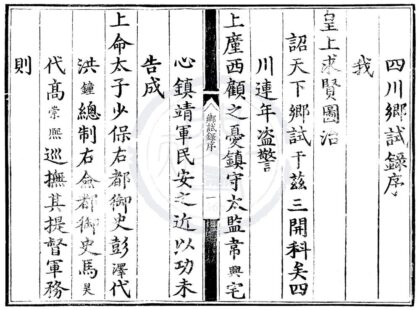 四川鄉試錄序
我
皇上求賢圖治
詔天下鄉試于茲三開科矣四
川連年盗警
上廑西顧之憂鎮守太監常興宅
鄉試錄序
一
心鎮靖軍民安之近以功未
告成
上命太子少保右都御史彭澤代
洪鐘總制右僉都御史馬昊
代高崇熙巡撫其提督軍務
則